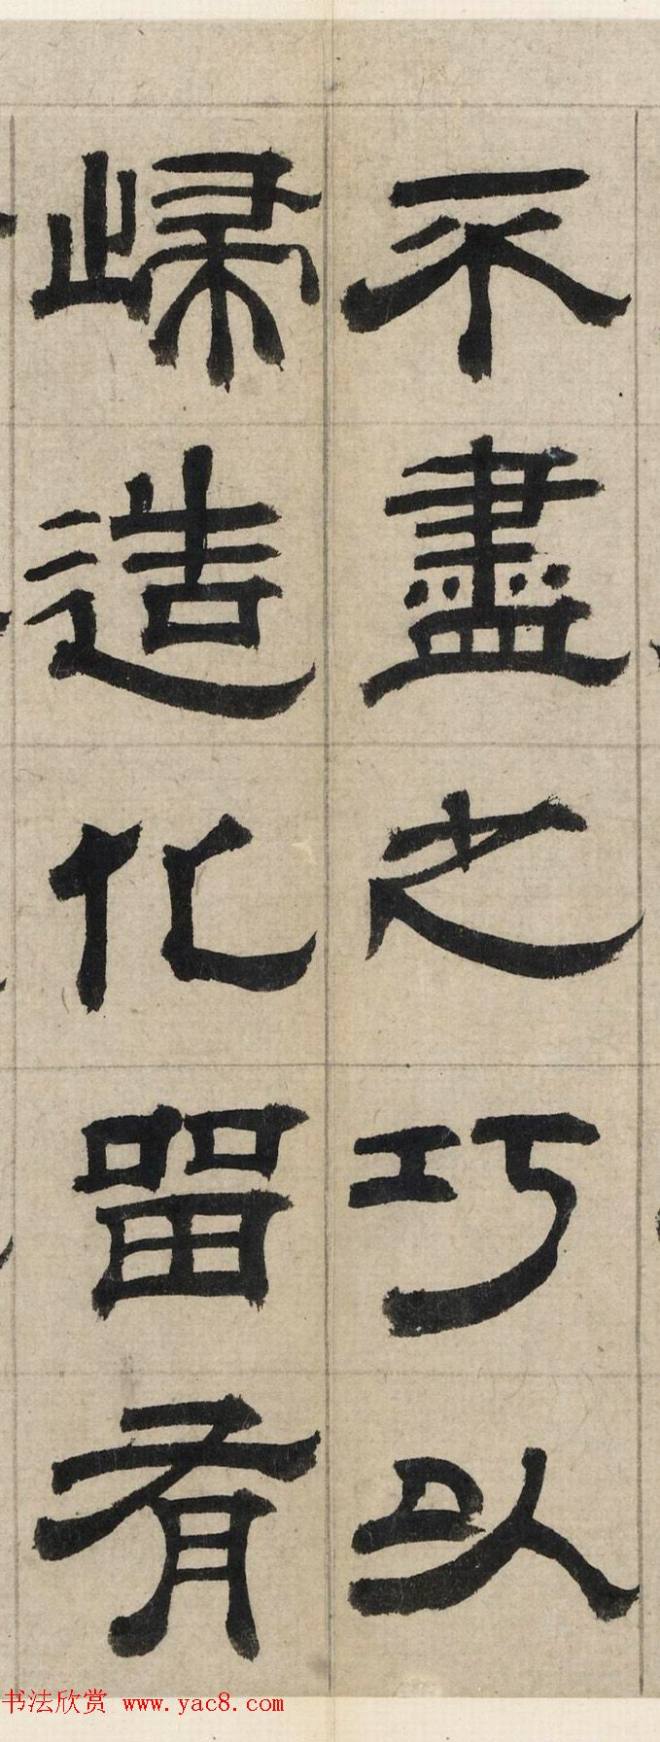 不盡之巧以
歸造化留有
书法欣赏 www.yac8.com